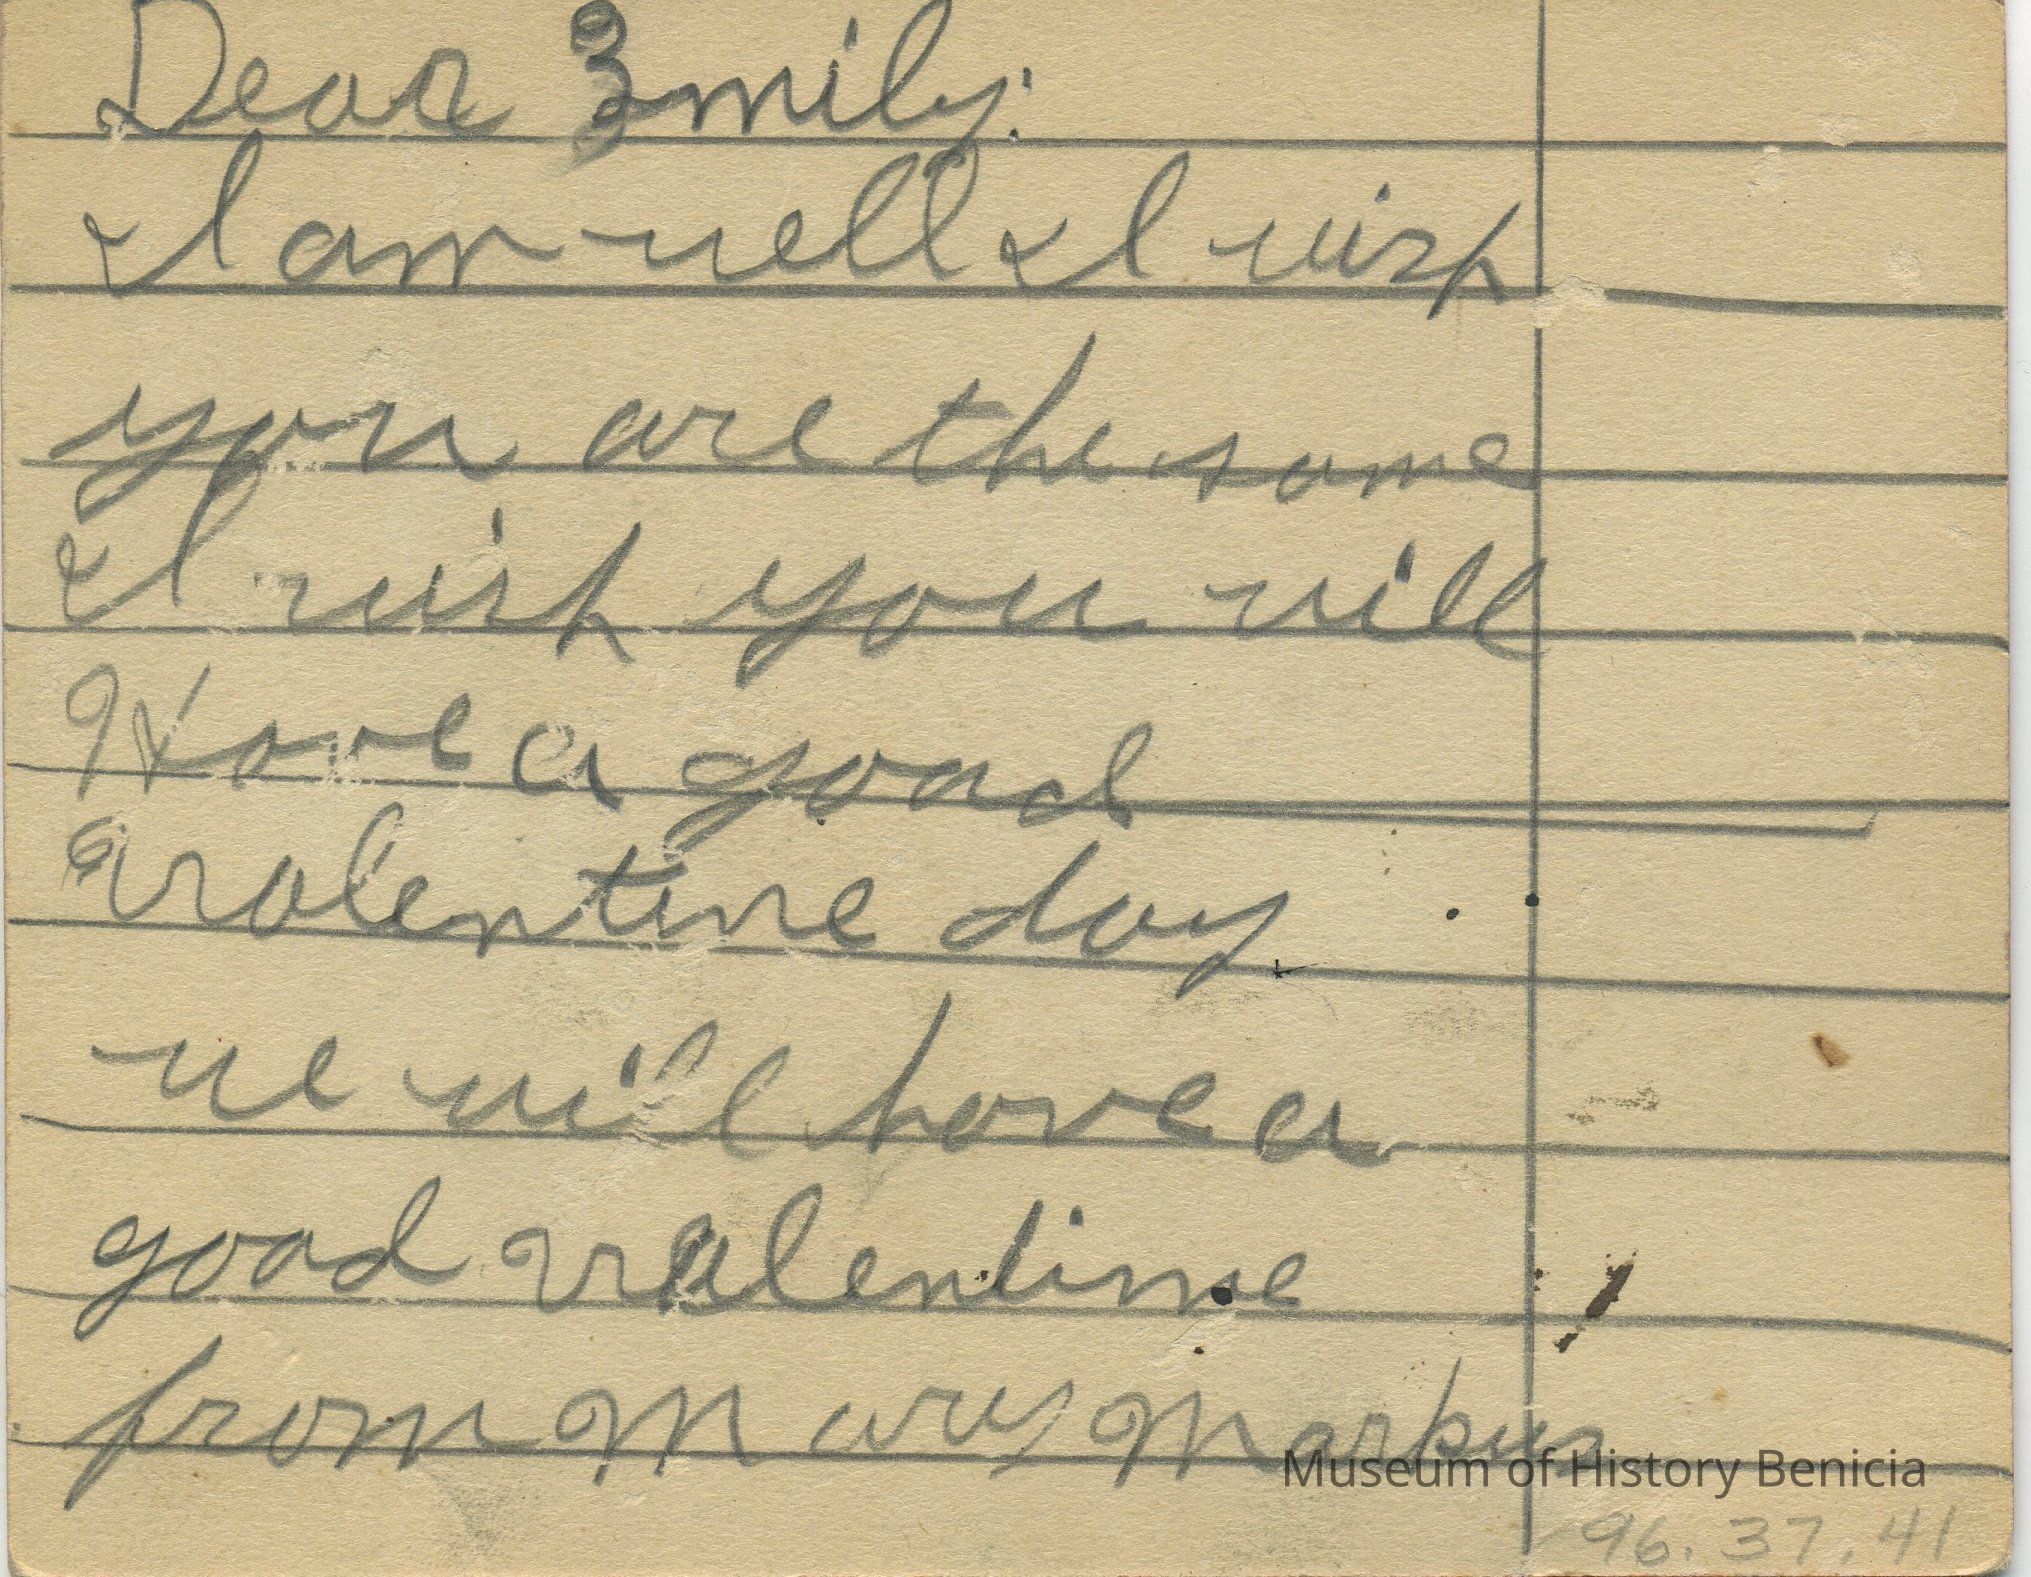 Dear Emily:
I am well I wish
you are the same
I wish you will
Have a good
Valentine day
we will have a
good Valentine
from Mary Markus
Museum of History Benicia
96.37.41